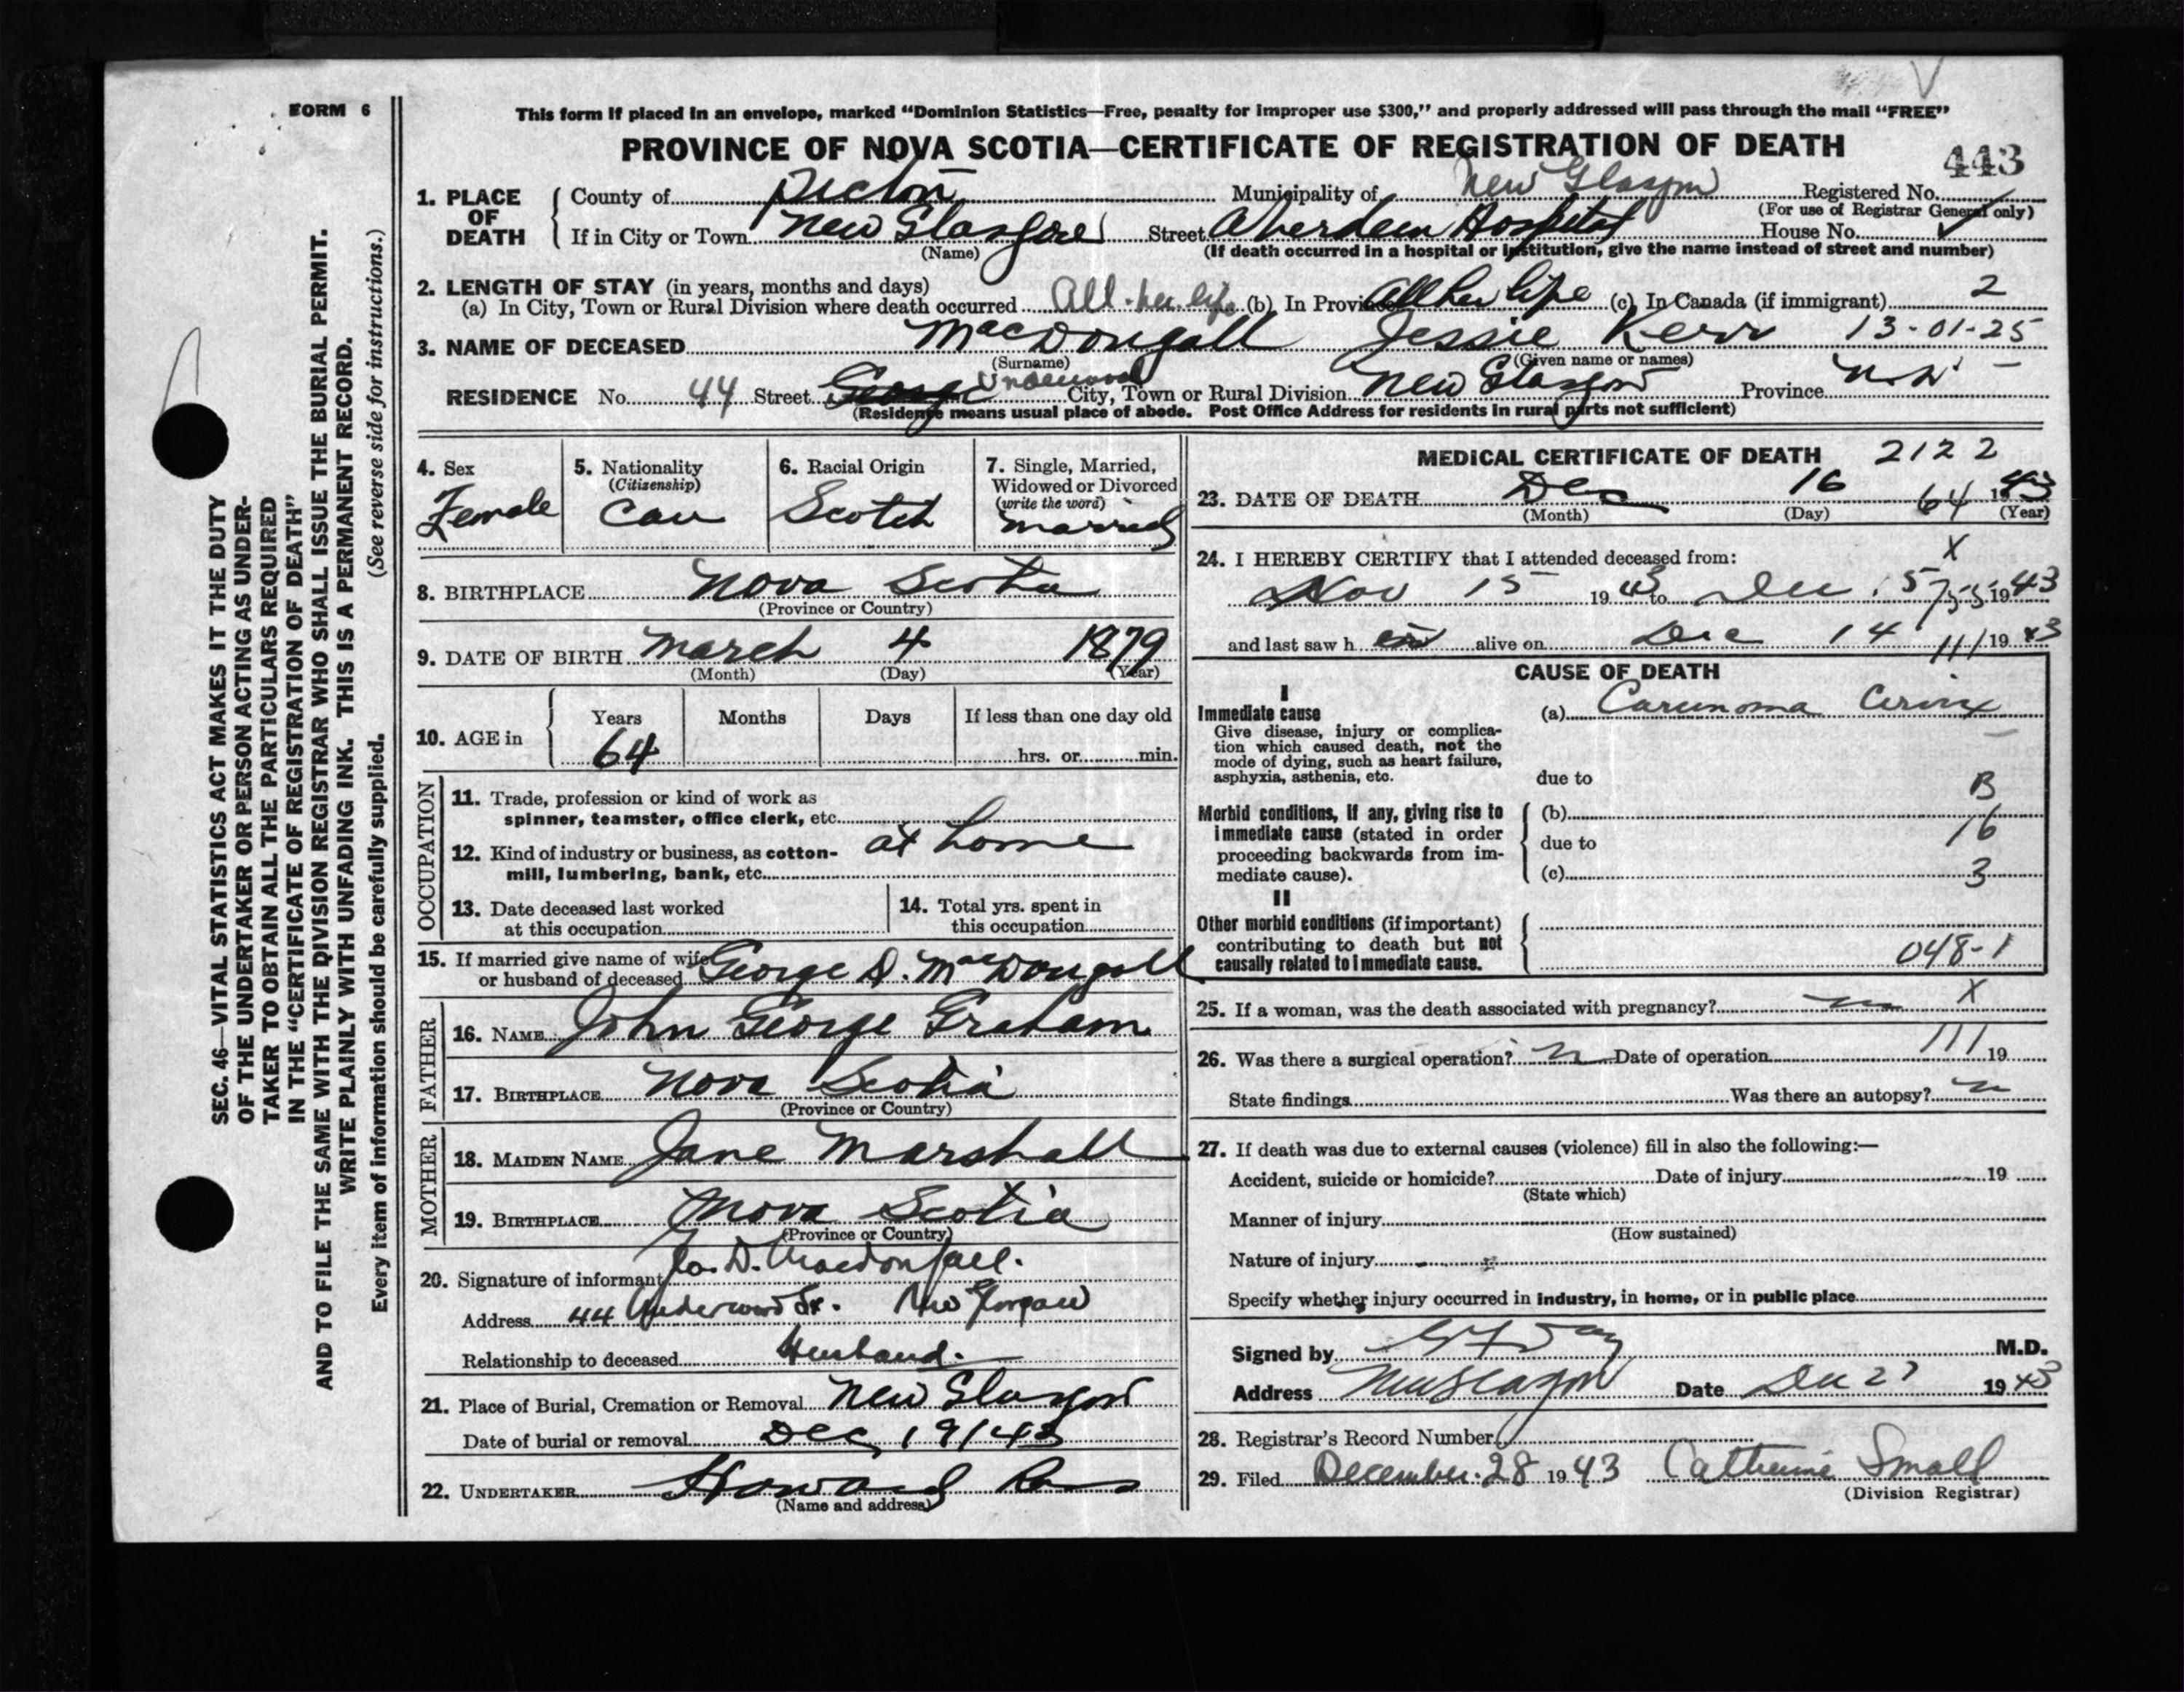 FORM 6
SEC. 46—VITAL STATISTICS ACT MAKES IT THE DUTY
OF THE UNDERTAKER OR PERSON ACTING AS UNDER-
TAKER TO OBTAIN ALL THE PARTICULARS REQUIRED
IN THE "CERTIFICATE OF REGISTRATION OF DEATH"
AND TO FILE THE SAME WITH THE DIVISION REGISTRAR WHO SHALL ISSUE THE BURIAL PERMIT.
WRITE PLAINLY WITH UNFADING INK. THIS IS A PERMANENT RECORD.
Every item of information should be carefully supplied. (See reverse side for instructions.)
This form if placed in an envelope, marked "Dominion Statistics—Free, penalty for improper use $300," and properly addressed will pass through the mail "FREE"
PROVINCE OF NOVA SCOTIA—CERTIFICATE OF REGISTRATION OF DEATH
443
1. PLACE OF DEATH County of Pictou Municipality of New Glasgow Registered No.
(For use of Registrar General only)
If in City or Town New Glasgow Street Aberdeen Hospital House No.
(Name) (If death occurred in a hospital or institution, give the name instead of street and number)
2. LENGTH OF STAY (in years, months and days)
(a) In City, Town or Rural Division where death occurred All her life (b) In Province All her life (c) In Canada (if immigrant) 2
3. NAME OF DECEASED MacDougall Jessie Kerr 13-01-25
(Surname) (Given name or names)
RESIDENCE No. 44 Street George Underwood City, Town or Rural Division New Glasgow Province N.S.
(Residence means usual place of abode. Post Office Address for residents in rural parts not sufficient)
4. Sex
Female
5. Nationality
(Citizenship)
Can
6. Racial Origin
Scotch
7. Single, Married,
Widowed or Divorced
(write the word)
married
8. BIRTHPLACE Nova Scotia
(Province or Country)
9. DATE OF BIRTH March 4 1879
(Month) (Day) (Year)
10. AGE in Years Months Days If less than one day old
64 hrs. or min.
OCCUPATION
11. Trade, profession or kind of work as
spinner, teamster, office clerk, etc.
12. Kind of industry or business, as cotton- at home
mill, lumbering, bank, etc.
13. Date deceased last worked
at this occupation
14. Total yrs. spent in
this occupation
15. If married give name of wife
or husband of deceased George D. MacDougall
FATHER
16. NAME John George Graham
17. BIRTHPLACE Nova Scotia
(Province or Country)
MOTHER
18. MAIDEN NAME Jane Marshall
19. BIRTHPLACE Nova Scotia
(Province or Country)
20. Signature of informant Geo. D. Macdougall.
Address 44 Underwood St. New Glasgow
Relationship to deceased Husband.
21. Place of Burial, Cremation or Removal New Glasgow
Date of burial or removal Dec 19/43
22. UNDERTAKER Howard
(Name and address)
MEDICAL CERTIFICATE OF DEATH 2122
23. DATE OF DEATH Dec 16 64 1943
(Month) (Day) (Year)
24. I HEREBY CERTIFY that I attended deceased from: X
Nov 15 1943 to Dec 15 1943
and last saw her alive on Dec 14 111 1943
CAUSE OF DEATH
I
Immediate cause
Give disease, injury or complica-
tion which caused death, not the
mode of dying, such as heart failure,
asphyxia, asthenia, etc.
(a) Carcinoma Cervix
due to
B
Morbid conditions, if any, giving rise to
immediate cause (stated in order
proceeding backwards from im-
mediate cause).
(b)
due to 16
(c) 3
II
Other morbid conditions (if important)
contributing to death but not
causally related to immediate cause.
048-1
25. If a woman, was the death associated with pregnancy? no X
26. Was there a surgical operation? n Date of operation 111 19
State findings Was there an autopsy? n
27. If death was due to external causes (violence) fill in also the following:—
Accident, suicide or homicide? Date of injury 19
(State which)
Manner of injury
(How sustained)
Nature of injury
Specify whether injury occurred in industry, in home, or in public place
Signed by M.D.
Address New Glasgow Date Dec 27 1943
28. Registrar's Record Number
29. Filed December 28 1943 Catherine Small
(Division Registrar)